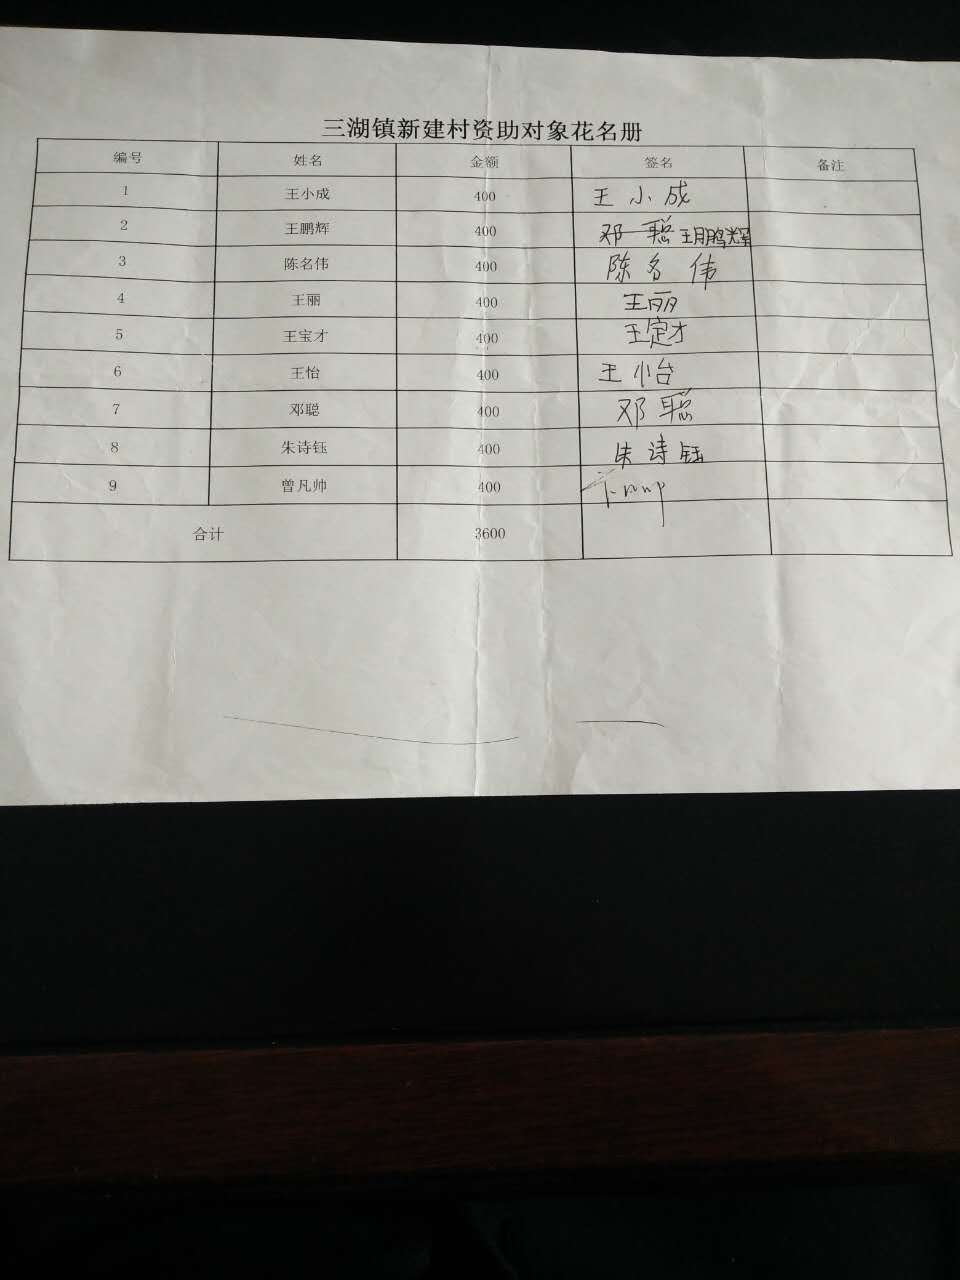 三湖镇新建村资助对象花名册
编号 姓名 金额 签名 备注
1 王小成 400 王小成
2 王鹏辉 400 邓聪 王鹏辉
3 陈名伟 400 陈名伟
4 王丽 400 王丽
5 王宝才 400 王定才
6 王怡 400 王怡
7 邓聪 400 邓聪
8 朱诗钰 400 朱诗钰
9 曾凡帅 400
合计 3600